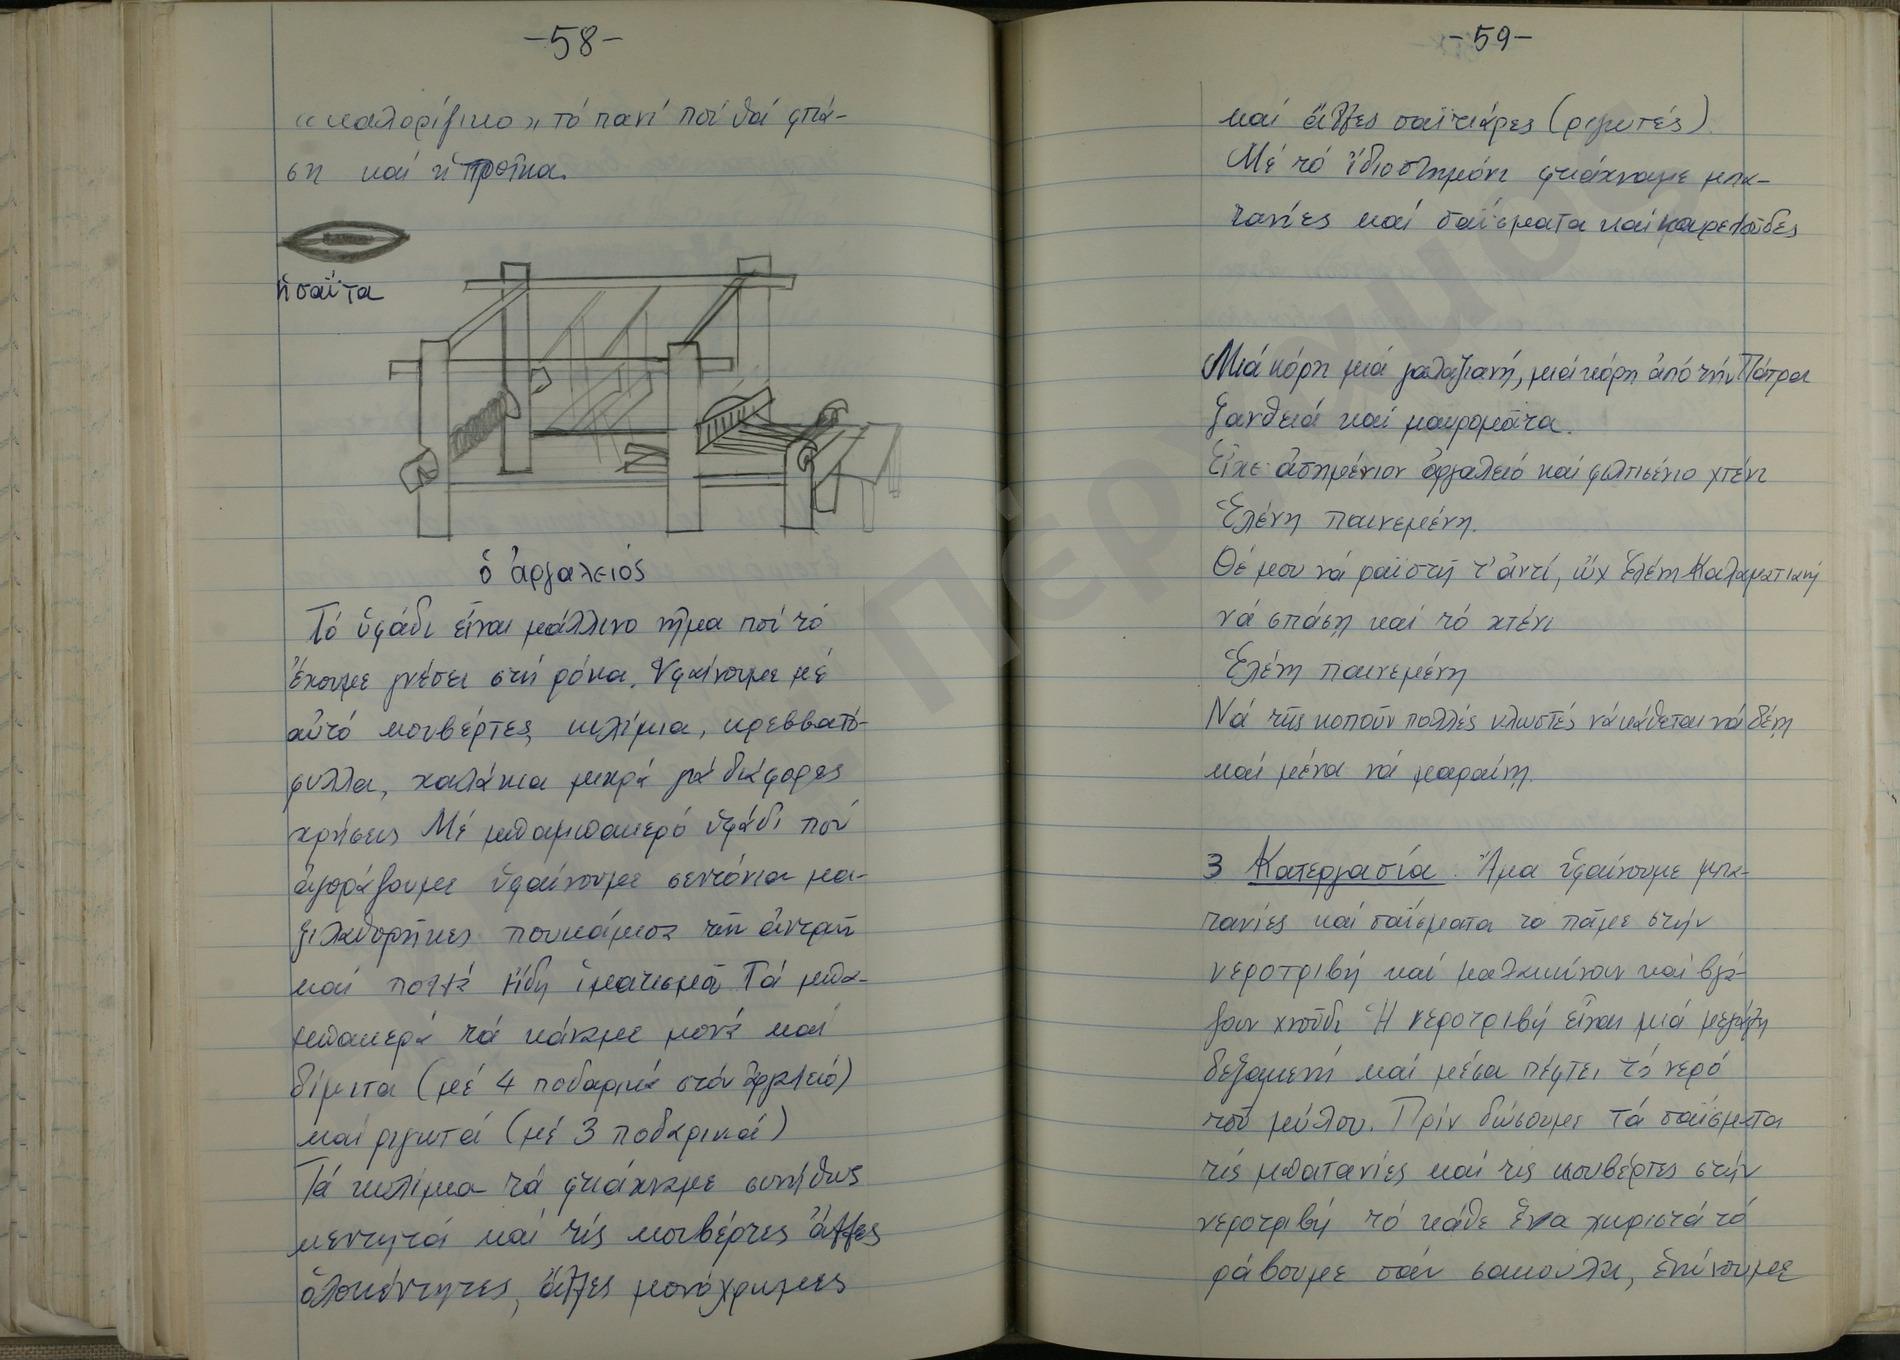 -58-
«καλορίζικο» τό πανί πού θά φτιά-
ση καί ἡ προῖκα.
ἡ σαΐτα
ὁ ἀργαλειός
Τό ὑφάδι εἶναι μάλλινο νῆμα πού τό
ἔχουμε γνέσει στή ρόκα. Ὑφαίνουμε μέ
αὐτό κουβέρτες, κιλίμια, κρεββατό-
φυλλα, χαλάκια μικρά γιά διάφορες
χρήσεις Μέ μπαμπακερό ὑφάδι πού
ἀγοράζουμε ὑφαίνουμε σεντόνια μα-
ξιλαθορῆκες πουκάμισα τοῦ ἀντρῆ
καί πολλά εἴδη ἱματισμοῦ Τά μπα-
μπακερά τά κάναμε μονά καί
δίμιτα (μέ 4 ποδαρικά στόν ἀργαλειό)
καί ριγωτά (μέ 3 ποδαρικά)
Τά κιλίμια τά φκιάχναμε συνήθως
κεντητά καί τίς κουβέρτες ἄλλες
ὁλοκέντητες, ἄλλες μονόχρωμες
-59-
καί ἄλλες σαϊτιάρες (ριγωτές)
Μέ τό ἴδιο στημόνι φκιάχναμε μπα-
τανίες καί σαΐσματα καί κουρελοῦδες
Μιά κόρη μιά γαλαξιανή, μιά κόρη ἀπό τήν Πάτρα
ξανθειά καί μαυρομάτα.
Εἶχε ἀσημένιον ἀργαλειό καί φιλντισένιο χτένι
Ἑλένη παινεμένη.
Θέ μου νά ραϊστῆ τ' ἀντί, ὤχ Ἑλένη Καλαματιανή
νά σπάση καί τό χτένι
Ἑλένη παινεμένη
Νά τῆς κοποῦν πολλές κλωστές νά κάθεται νά δένη
καί μένα νά μαραίνη.
3 Κατεργασία. Ἅμα ὑφαίνουμε μπα-
τανίες καί σαΐσματα τα πᾶμε στήν
νεροτριβή καί μαλακώνουν καί βγά-
ζουν χνοῦδι Ἡ νεροτριβή εἶναι μιά μεγάλη
δεξαμενή καί μέσα πέφτει τό νερό
τοῦ μύλου. Πρίν δώσουμε τά σαΐσματα
τίς μπατανίες καί τίς κουβέρτες στήν
νεροτριβή τό κάθε ἕνα χωριστά τό
ράβουμε σάν σακούλα, ἑνώνουμε